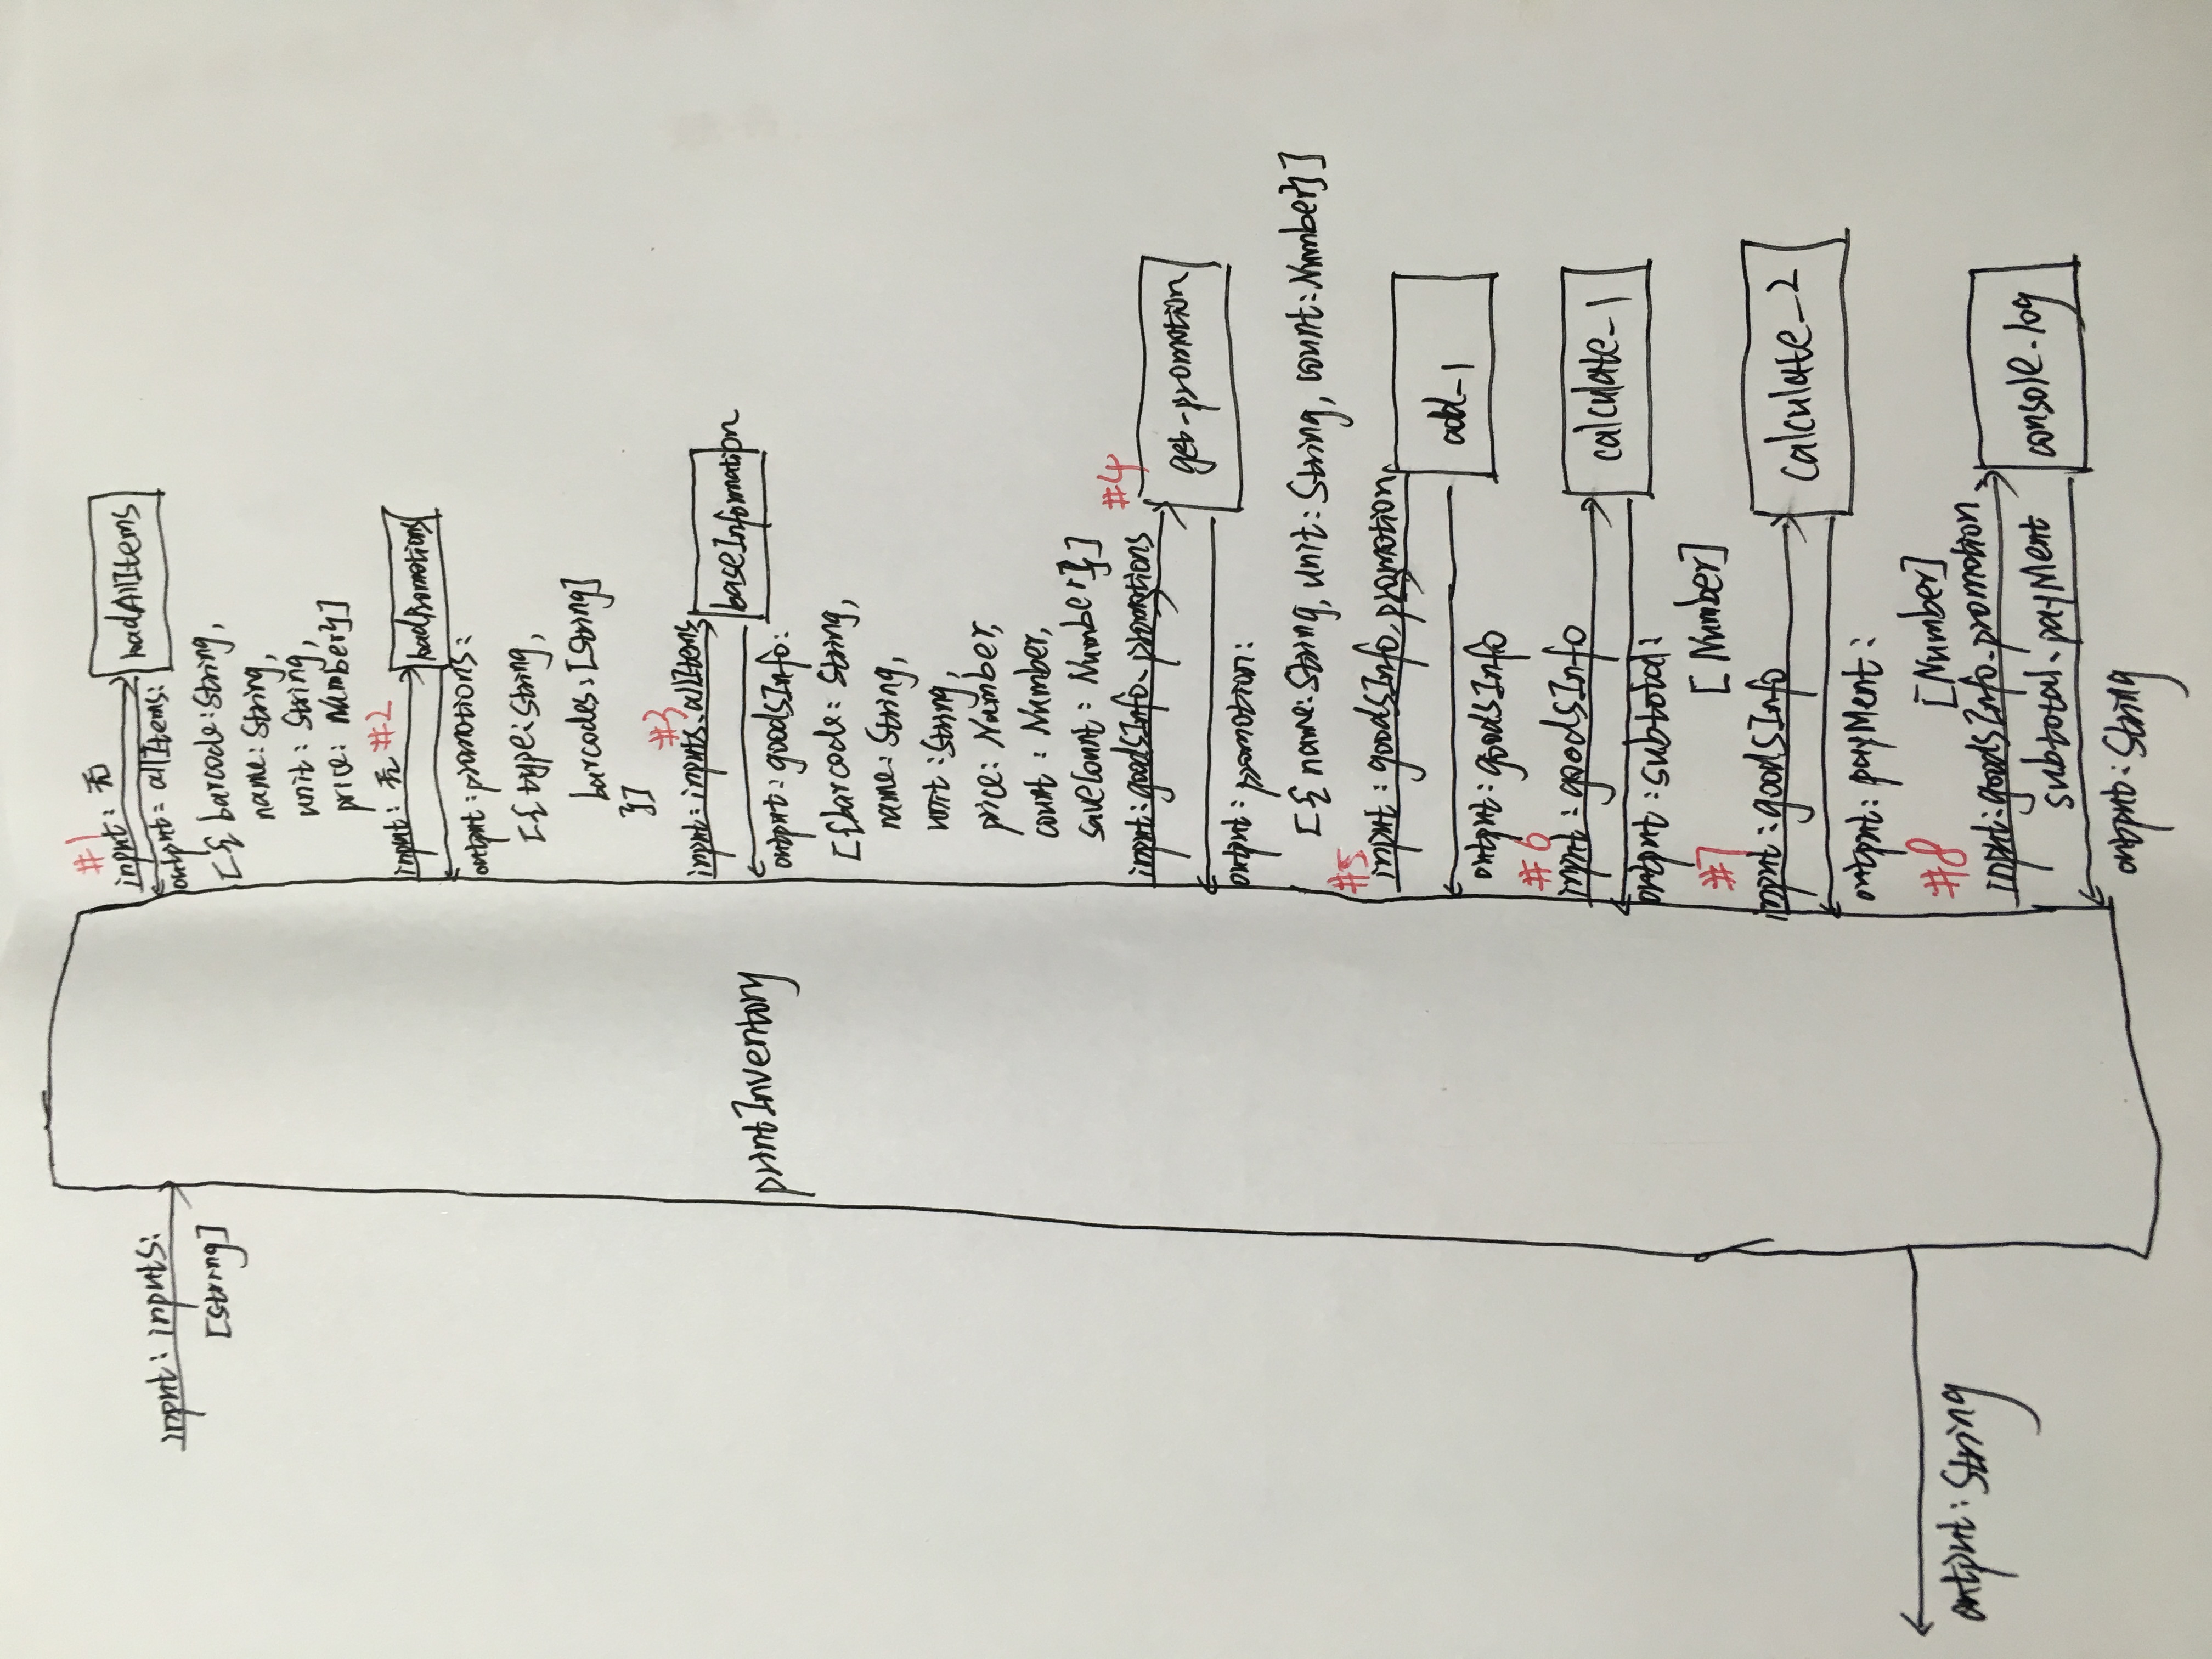 input: inputs:
[string]
printInventory
output: String
#1
input: 无
loadAllItems
output: allItems:
[{ barcode: String,
name: String,
unit: String,
price: Number}]
input: 无 #2
loadPromotions
output: promotions:
[{ type: String,
barcodes: [String]
}]
#3
input: inputs、allItems
baseInformation
output: goodsInfo:
[{barcode: String,
name: String,
unit: String,
price: Number,
count: Number,
saveCount: Number}]
#4
input: goodsInfo、promotions
get-promotion
output: promotion:
[{ name: String, unit: String, count: Number}]
#5
input: goodsInfo、promotion
add_1
output: goodsInfo
#6
input: goodsInfo
calculate_1
output: subtotal:
[Number]
#7
input: goodsInfo
calculate_2
output: payMent:
[Number]
#8
input: goodsInfo、promotion
subtotal、payMent
console.log
output: String